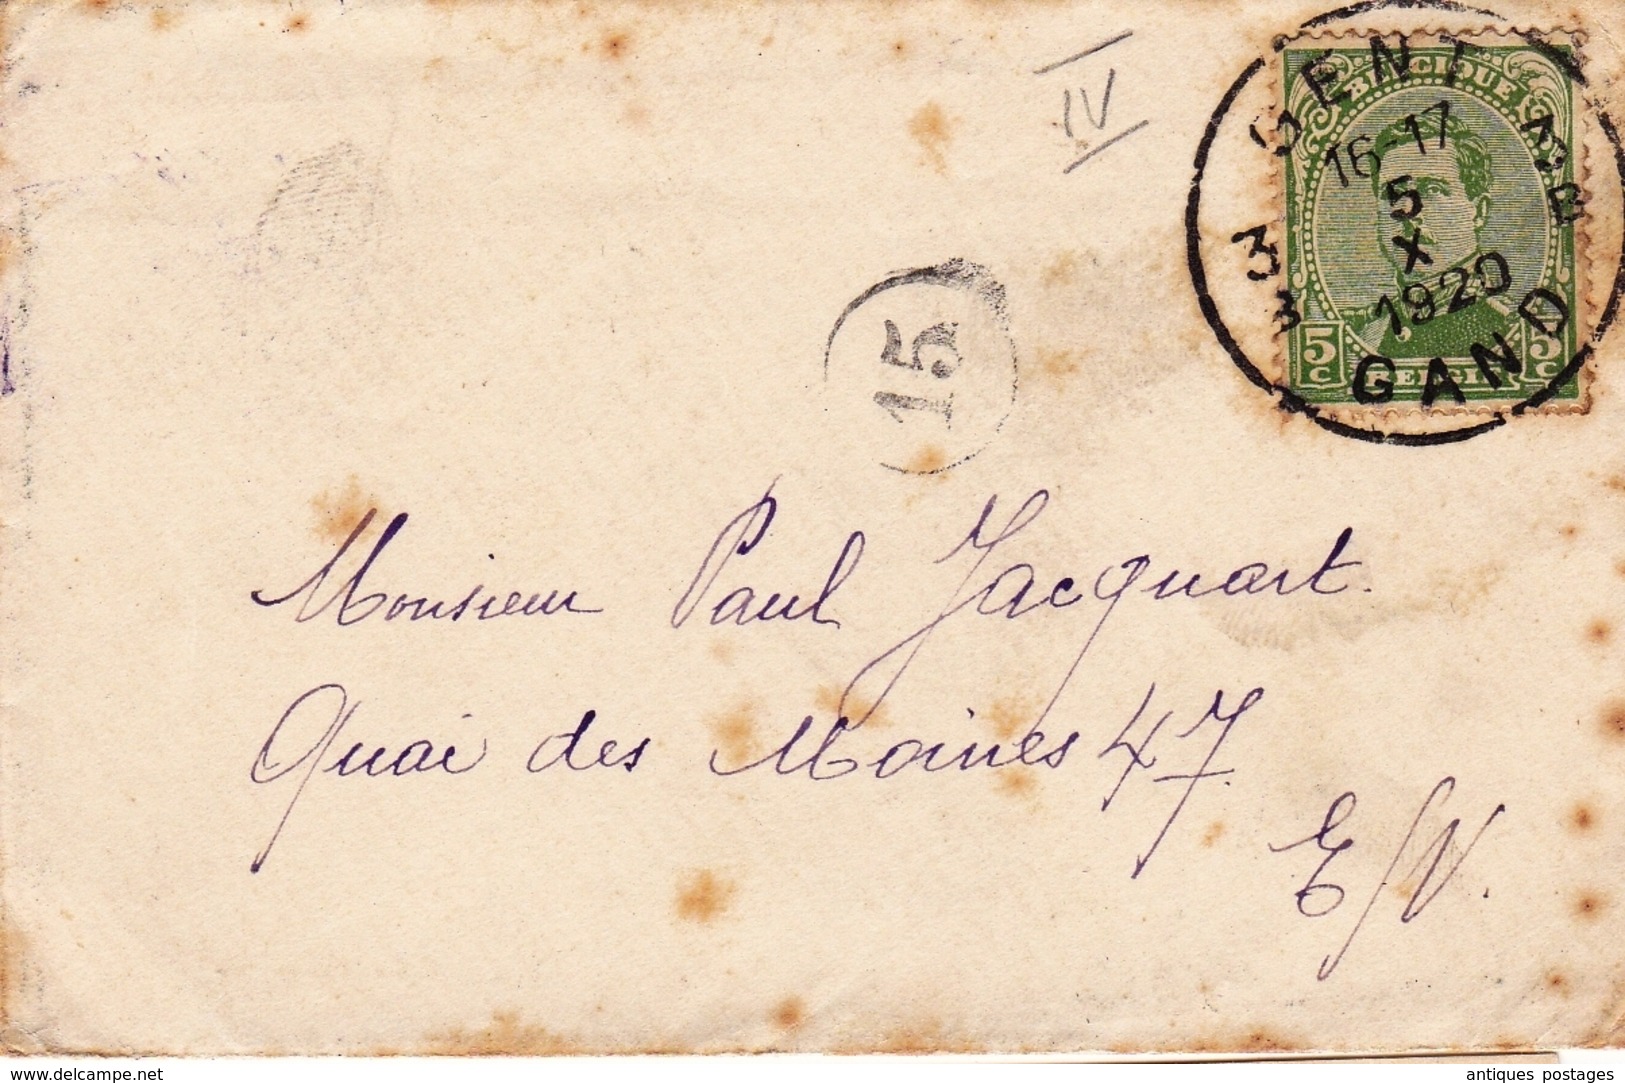 IV
GENT
GAND
16-17
5
X
1920
3B
3B
BELGIQUE
5
C
BELGIË
5
C
15
Monsieur Paul Jacquart.
Quai des Moines 47.
E/V.
www.delcampe.net
antiques postages